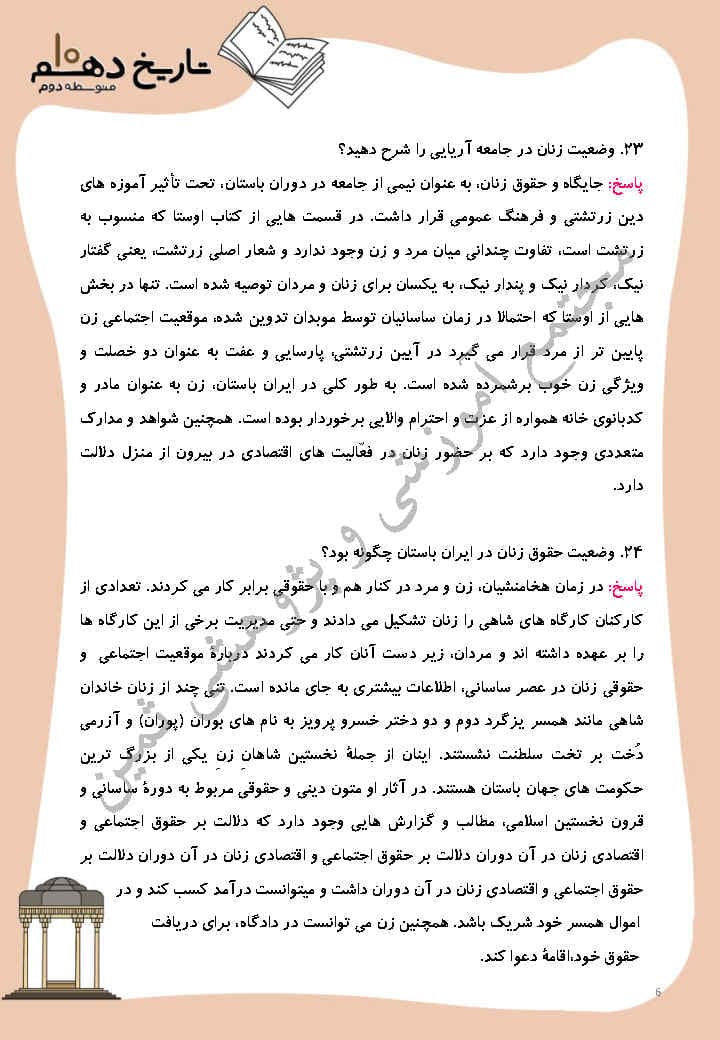 تاریخ دهم ۱۰
متوسطه دوم
۲۳. وضعیت زنان در جامعه آریایی را شرح دهید؟
پاسخ: جایگاه و حقوق زنان، به عنوان نیمی از جامعه در دوران باستان، تحت تأثیر آموزه های
دین زرتشتی و فرهنگ عمومی قرار داشت. در قسمت هایی از کتاب اوستا که منسوب به
زرتشت است، تفاوت چندانی میان مرد و زن وجود ندارد و شعار اصلی زرتشت، یعنی گفتار
نیک، کردار نیک و پندار نیک، به یکسان برای زنان و مردان توصیه شده است. تنها در بخش
هایی از اوستا که احتمالا در زمان ساسانیان توسط موبدان تدوین شده، موقعیت اجتماعی زن
پایین تر از مرد قرار می گیرد در آیین زرتشتی، پارسایی و عفت به عنوان دو خصلت و
ویژگی زن خوب برشمرده شده است. به طور کلی در ایران باستان، زن به عنوان مادر و
کدبانوی خانه همواره از عزت و احترام والایی برخوردار بوده است. همچنین شواهد و مدارک
متعددی وجود دارد که بر حضور زنان در فعّالیت های اقتصادی در بیرون از منزل دلالت
دارد.
۲۴. وضعیت حقوق زنان در ایران باستان چگونه بود؟
پاسخ: در زمان هخامنشیان، زن و مرد در کنار هم و با حقوقی برابر کار می کردند. تعدادی از
کارکنان کارگاه های شاهی را زنان تشکیل می دادند و حتی مدیریت برخی از این کارگاه ها
را بر عهده داشته اند و مردان، زیر دست آنان کار می کردند دربارهٔ موقعیت اجتماعی و
حقوقی زنان در عصر ساسانی، اطلاعات بیشتری به جای مانده است. تنی چند از زنان خاندان
شاهی مانند همسر یزگرد دوم و دو دختر خسرو پرویز به نام های بوران (پوران) و آزرمی
دُخت بر تخت سلطنت نشستند. اینان از جملهٔ نخستین شاهانِ زنِ یکی از بزرگ ترین
حکومت های جهان باستان هستند. در آثار او متون دینی و حقوقی مربوط به دورهٔ ساسانی و
قرون نخستین اسلامی، مطالب و گزارش هایی وجود دارد که دلالت بر حقوق اجتماعی و
اقتصادی زنان در آن دوران دلالت بر حقوق اجتماعی و اقتصادی زنان در آن دوران دلالت بر
حقوق اجتماعی و اقتصادی زنان در آن دوران داشت و میتوانست درآمد کسب کند و در
اموال همسر خود شریک باشد. همچنین زن می توانست در دادگاه، برای دریافت
حقوق خود،اقامهٔ دعوا کند.
مجتمع آموزشی و پژوهشی ثمین
6